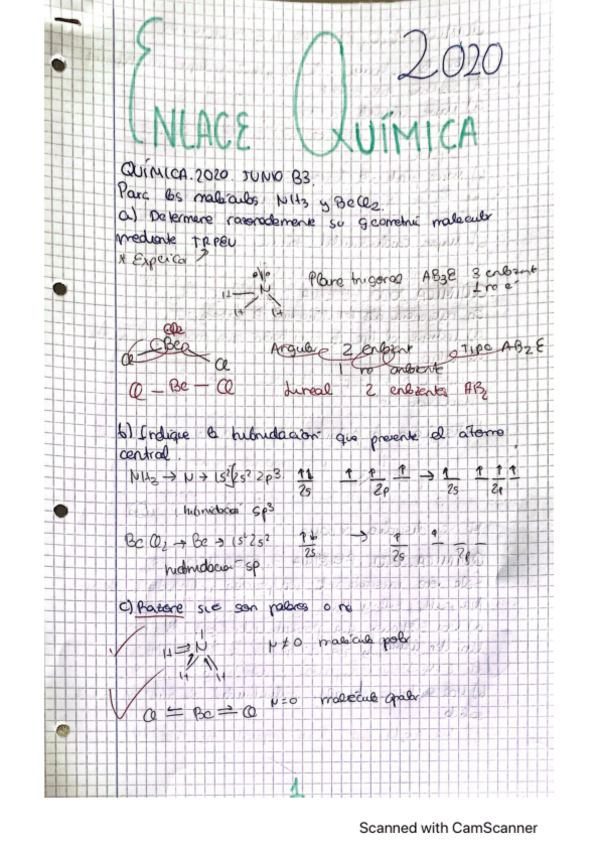 2020
ENLACE QUÍMICA
QUÍMICA. 2020. JUNIO B3.
Para las moléculas NH3 y BeCl2.
a) Determine razonadamente su geometría molecular
mediante TRPEV
* Explica ?
N
H H H
Plano trigonal AB3E 3 enlazant
1 no e
Cl Be Cl
Angular 2 enlazant Tipo AB2E
1 no enlazante
Cl - Be - Cl Lineal 2 enlazantes AB2
b) Indique la hibridación que presente el átomo
central.
NH3 → N → 1s² 2s² 2p³ 2s 2p → 2s 2p
hibridación sp³
BeCl2 → Be → 1s² 2s² 2s → 2s 2p
hibridación sp
c) Razone si son polares o no
H N H H
≠0 molécula polar
Cl Be Cl =0 molécula apolar
1
Scanned with CamScanner